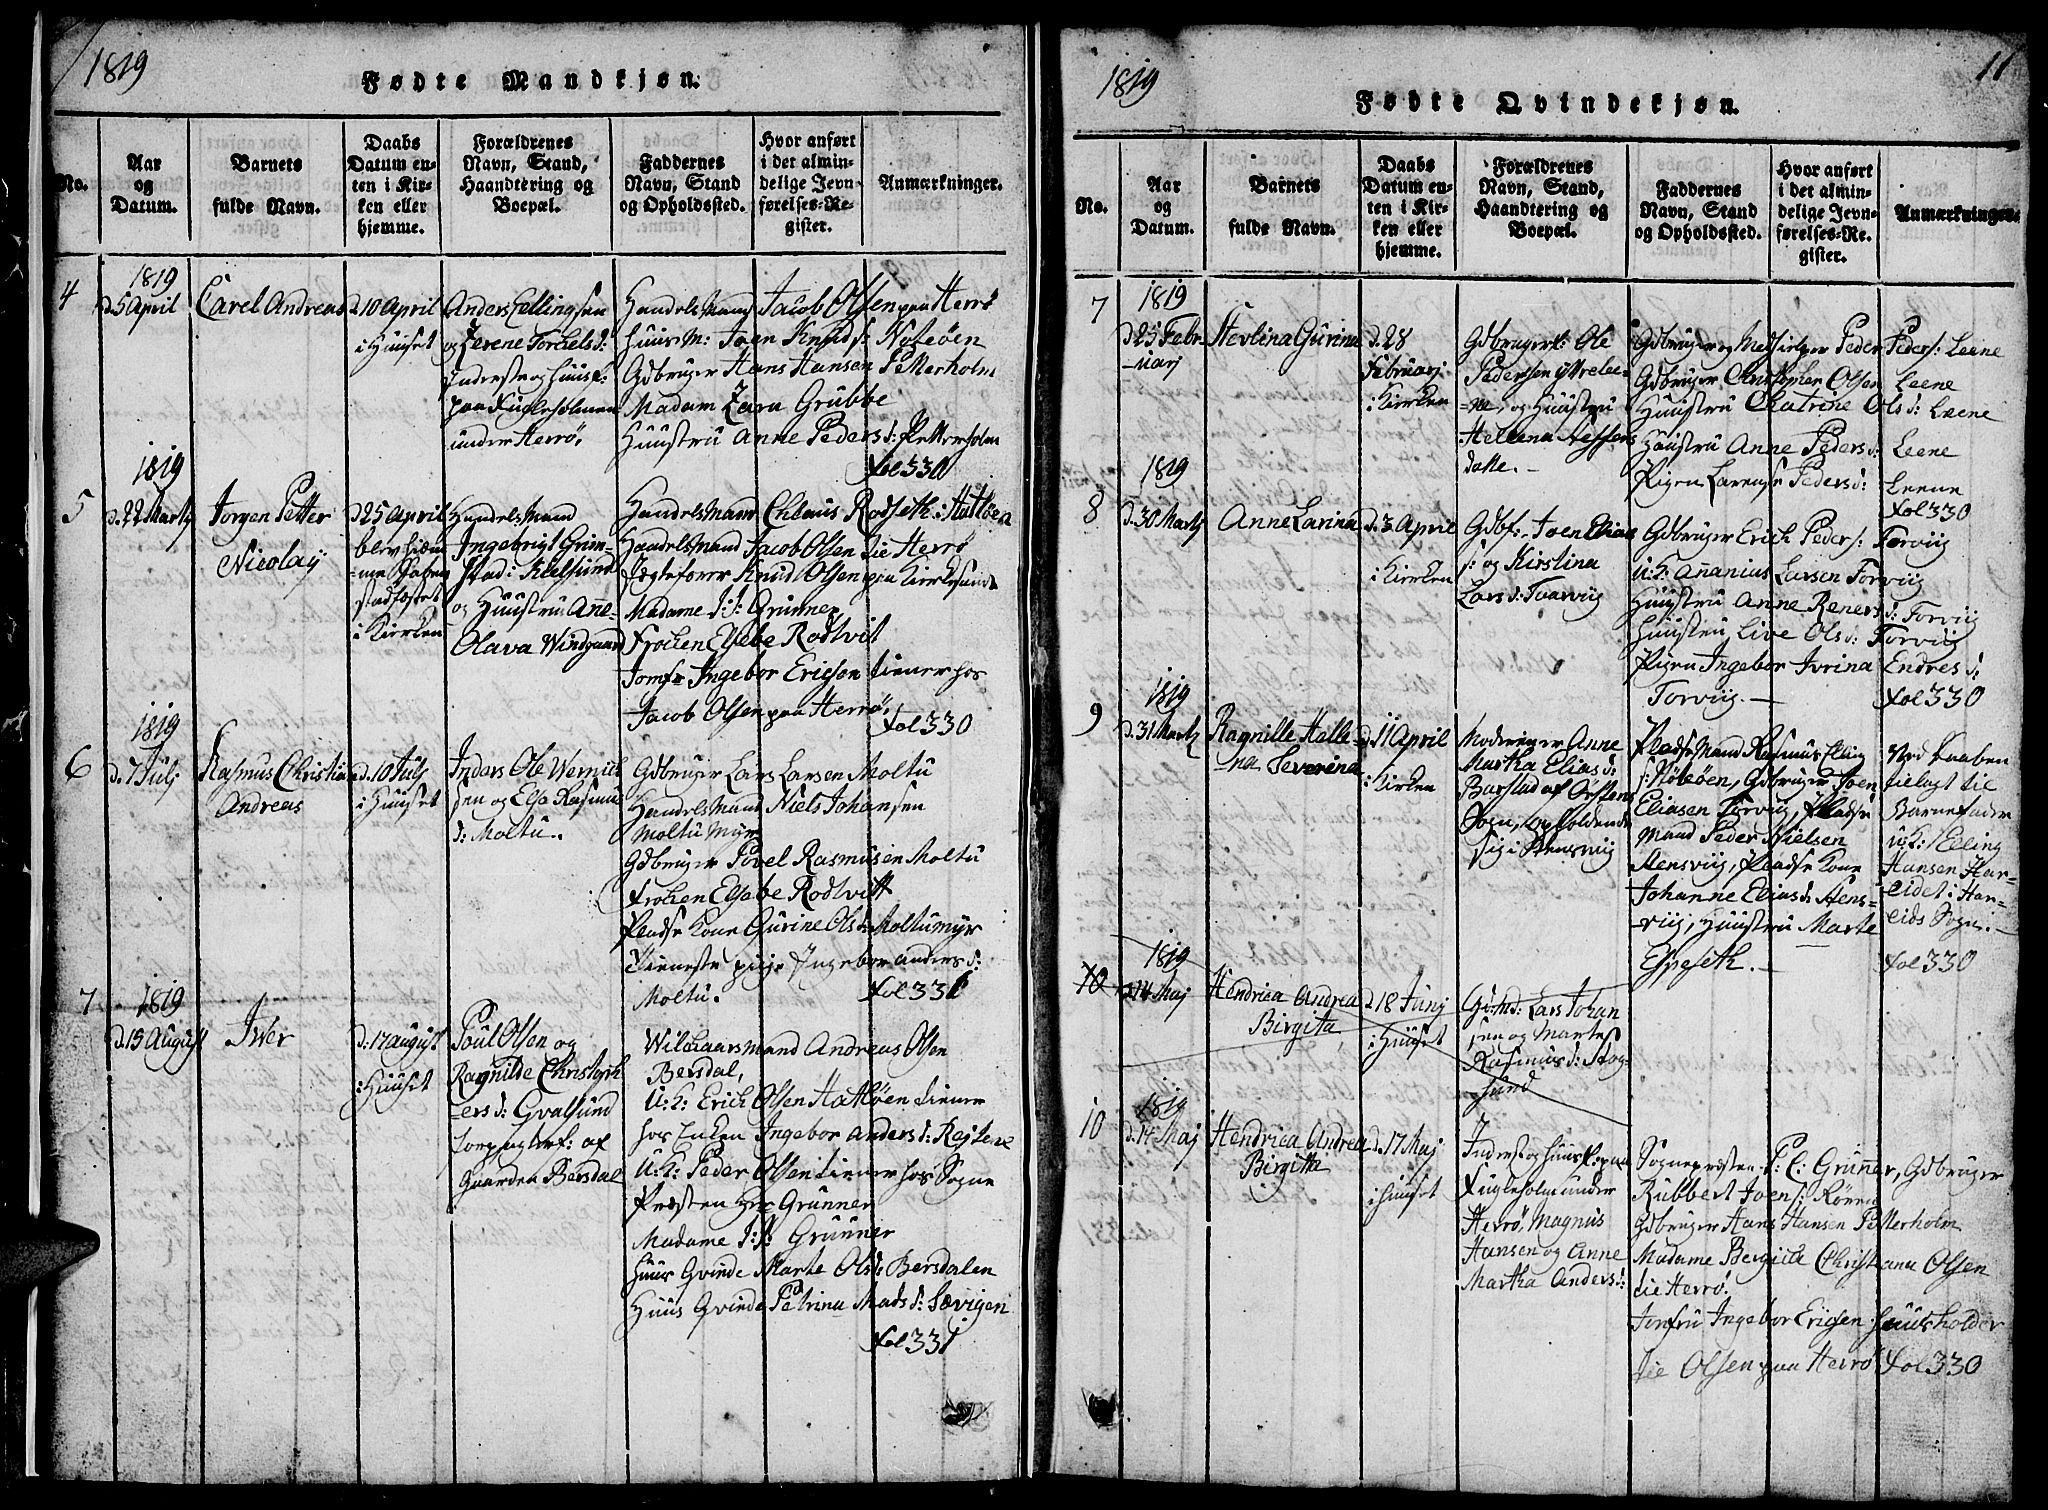 1819
Fødte Mandkjøn.
No.
Aar
og
Datum.
Barnets
fulde Navn.
Daabs
Datum en-
ten i Kir-
ken eller
hjemme.
Forældrenes
Navn, Stand,
Haandtering og
Boepæl.
Faddernes
Navn, Stand
og Opholdssted.
Hvor anført
i det almin-
delige Jevn-
førelses-Re-
gister.
Anmærkninger.
4
1819
d. 5 April
Carel Andreas
d. 10 April
i Huuset
Anders Ellingsen
og Serene Torkels d:
Inderste og Huusf:
paa Fugleholmen
under Herrø,
Handels Mand Jacob Olsen paa Herrø
Huus M: Joen Knuds: Notøen
Gdbruger Hans Hansen Petterholm
Madam Zara Grubbe
Huustru Anne Peders d: Petterholm
Fol 330
5
1819
d. 22 Martz
Jorgen Petter
Nicolay
d. 25 April
blev hiem-
me Daaben
stadfæstet
i Kirken
Handels Mand
Ingebrigt Grim-
stad i
og Huustru Ane
Olava Windgaard
Handels Mand Chlaus Rodseth i Hatløen
Handels Mand Jacob Olsen tie Herrø
Jægtefører Knud Olsen paa Kirkesund
Madame J: J: Grunner
Frøken Elsebe Rodtvit
Jomfr Ingebor Ericsen tiener hos
Jacob Olsen paa Herrø,
Fol 330
6
1819
d. 7 Julj
Rasmus Christian
Andreas
d. 10 Julj
i Huuset
Inders Ole Wernich
sen og Else Rasmus
d: Moltu.
Gdbruger Lars Larsen Moltu
Handels Mand Niels Johansen
Moltu Myr
Gdbruger Povel Rasmusen Moltu
Frøken Elsebe Rodtvitt
Pladse Kone Gurine Ols d: Moltumyr
Tieneste pige Ingebor Anders d:
Moltu.
Fol 331
7
1819
d. 15 August
Iver
d: 17 August
i Huuset
Poul Olsen og
Ragnilde Christoph
-ers d: Gvalsund
forpagter: af
Gaarden Bersdal
Wilchaarsmand Andreas Olsen
Bersdal,
U: K: Erich Olsen Hatløen tiener
hos Enken Ingebor Anders d: Røjtene
U: K: Peder Olsen tiener hos Sogne
Præsten Hr: Grunner
Madame J: P: Grunner
Huus Qvinde Marte Ols d: Bersdalen
Huus Qvinde Petrina Mads d: Sævigen
Fol 331
1819
11
Fødte Qvindekjøn.
No.
Aar
og
Datum.
Barnets
fulde Navn.
Daabs
Datum en-
ten i Kir-
ken eller
hjemme.
Forældrenes
Navn, Stand,
Haandtering og
Boepæl.
Faddernes
Navn, Stand
og Opholdssted.
Hvor anført
i det almin-
delige Jevn-
førelses-Re-
gister.
Anmærkninger.
7
1819
d. 25 Febr
-uarj
Stevlina Gurina
d. 28
Februarj
i Kirken
Gdbruger: Ole
Pedersen Yttrelee-
-ne, og Huustru
Hellena
datter.
Gdbruger og Medhielper Peder Peders: Leene
Gdbruger Christopher Olsen Leene
Huustru Chatrine Ols d: Leene
Huustru Anne Peders d: Leene
Pigen Larense Peders d: Leene
Fol 330
8
1819
d. 30 Martj
Anne Larina
d. 3 April
i Kirken
Gdbr. Joen Elias
s: og Kirstina
Lars d: Toarviig
Gdbruger Erich Peders: Torviig
U: K: Ananius Larsen Torviig
Huustru Anne Reners d: Torviig
Huustru Live Ols d: Torviig
Pigen Ingebor Ivrina Endres d:
Torviig.
Fol 330
9
1819
d. 31 Martz
Ragnille Helle-
na Severina
d. 11 April
i Kirken
Moder: Anne
Martha Elias d:
Barstad af Ørstens
Sogn, opholdende
sig i Stensviig
Pladse Mand Rasmus Elling
s: Noteøen, Gdbruger Joen
Eliasen Torviig, Pladse
Mand Peder Nielsen
Stensviig, Pladse Kone
Johanne Elias d: Stens-
-viig, Huustru Marte
Espeseth.
Ved Daaben
tilagt til
Barnefader
U: K: Elling
Hansen Har-
eidet i Har-
eids Sogn.
Fol 330
10
1819
d. 14 Maj
Hendrica Andrea
Birgita
d. 18 Junj
i Huuset
Lars Johan
sen og Marte
Rasmus d:
sund
10
1819
d. 14 Maj
Hendrica Andrea
Birgitta
d. 17 Maj
i Huuset
Inderst og Huusf: paa
Fugleholm under
Herrø, Magnus
Hansen og Anne
Martha Anders d:
Sognepresten P: C: Grunner, Gdbruger
Rubbert Joens: Rönne
Gdbruger Hans Hansen Petterholm
Madame Bergitta Christiana Olsen
tie Herrø.
Jomfru Ingebor Ericsen Huusholder
tie Olsen paa Herrø
Fol 330